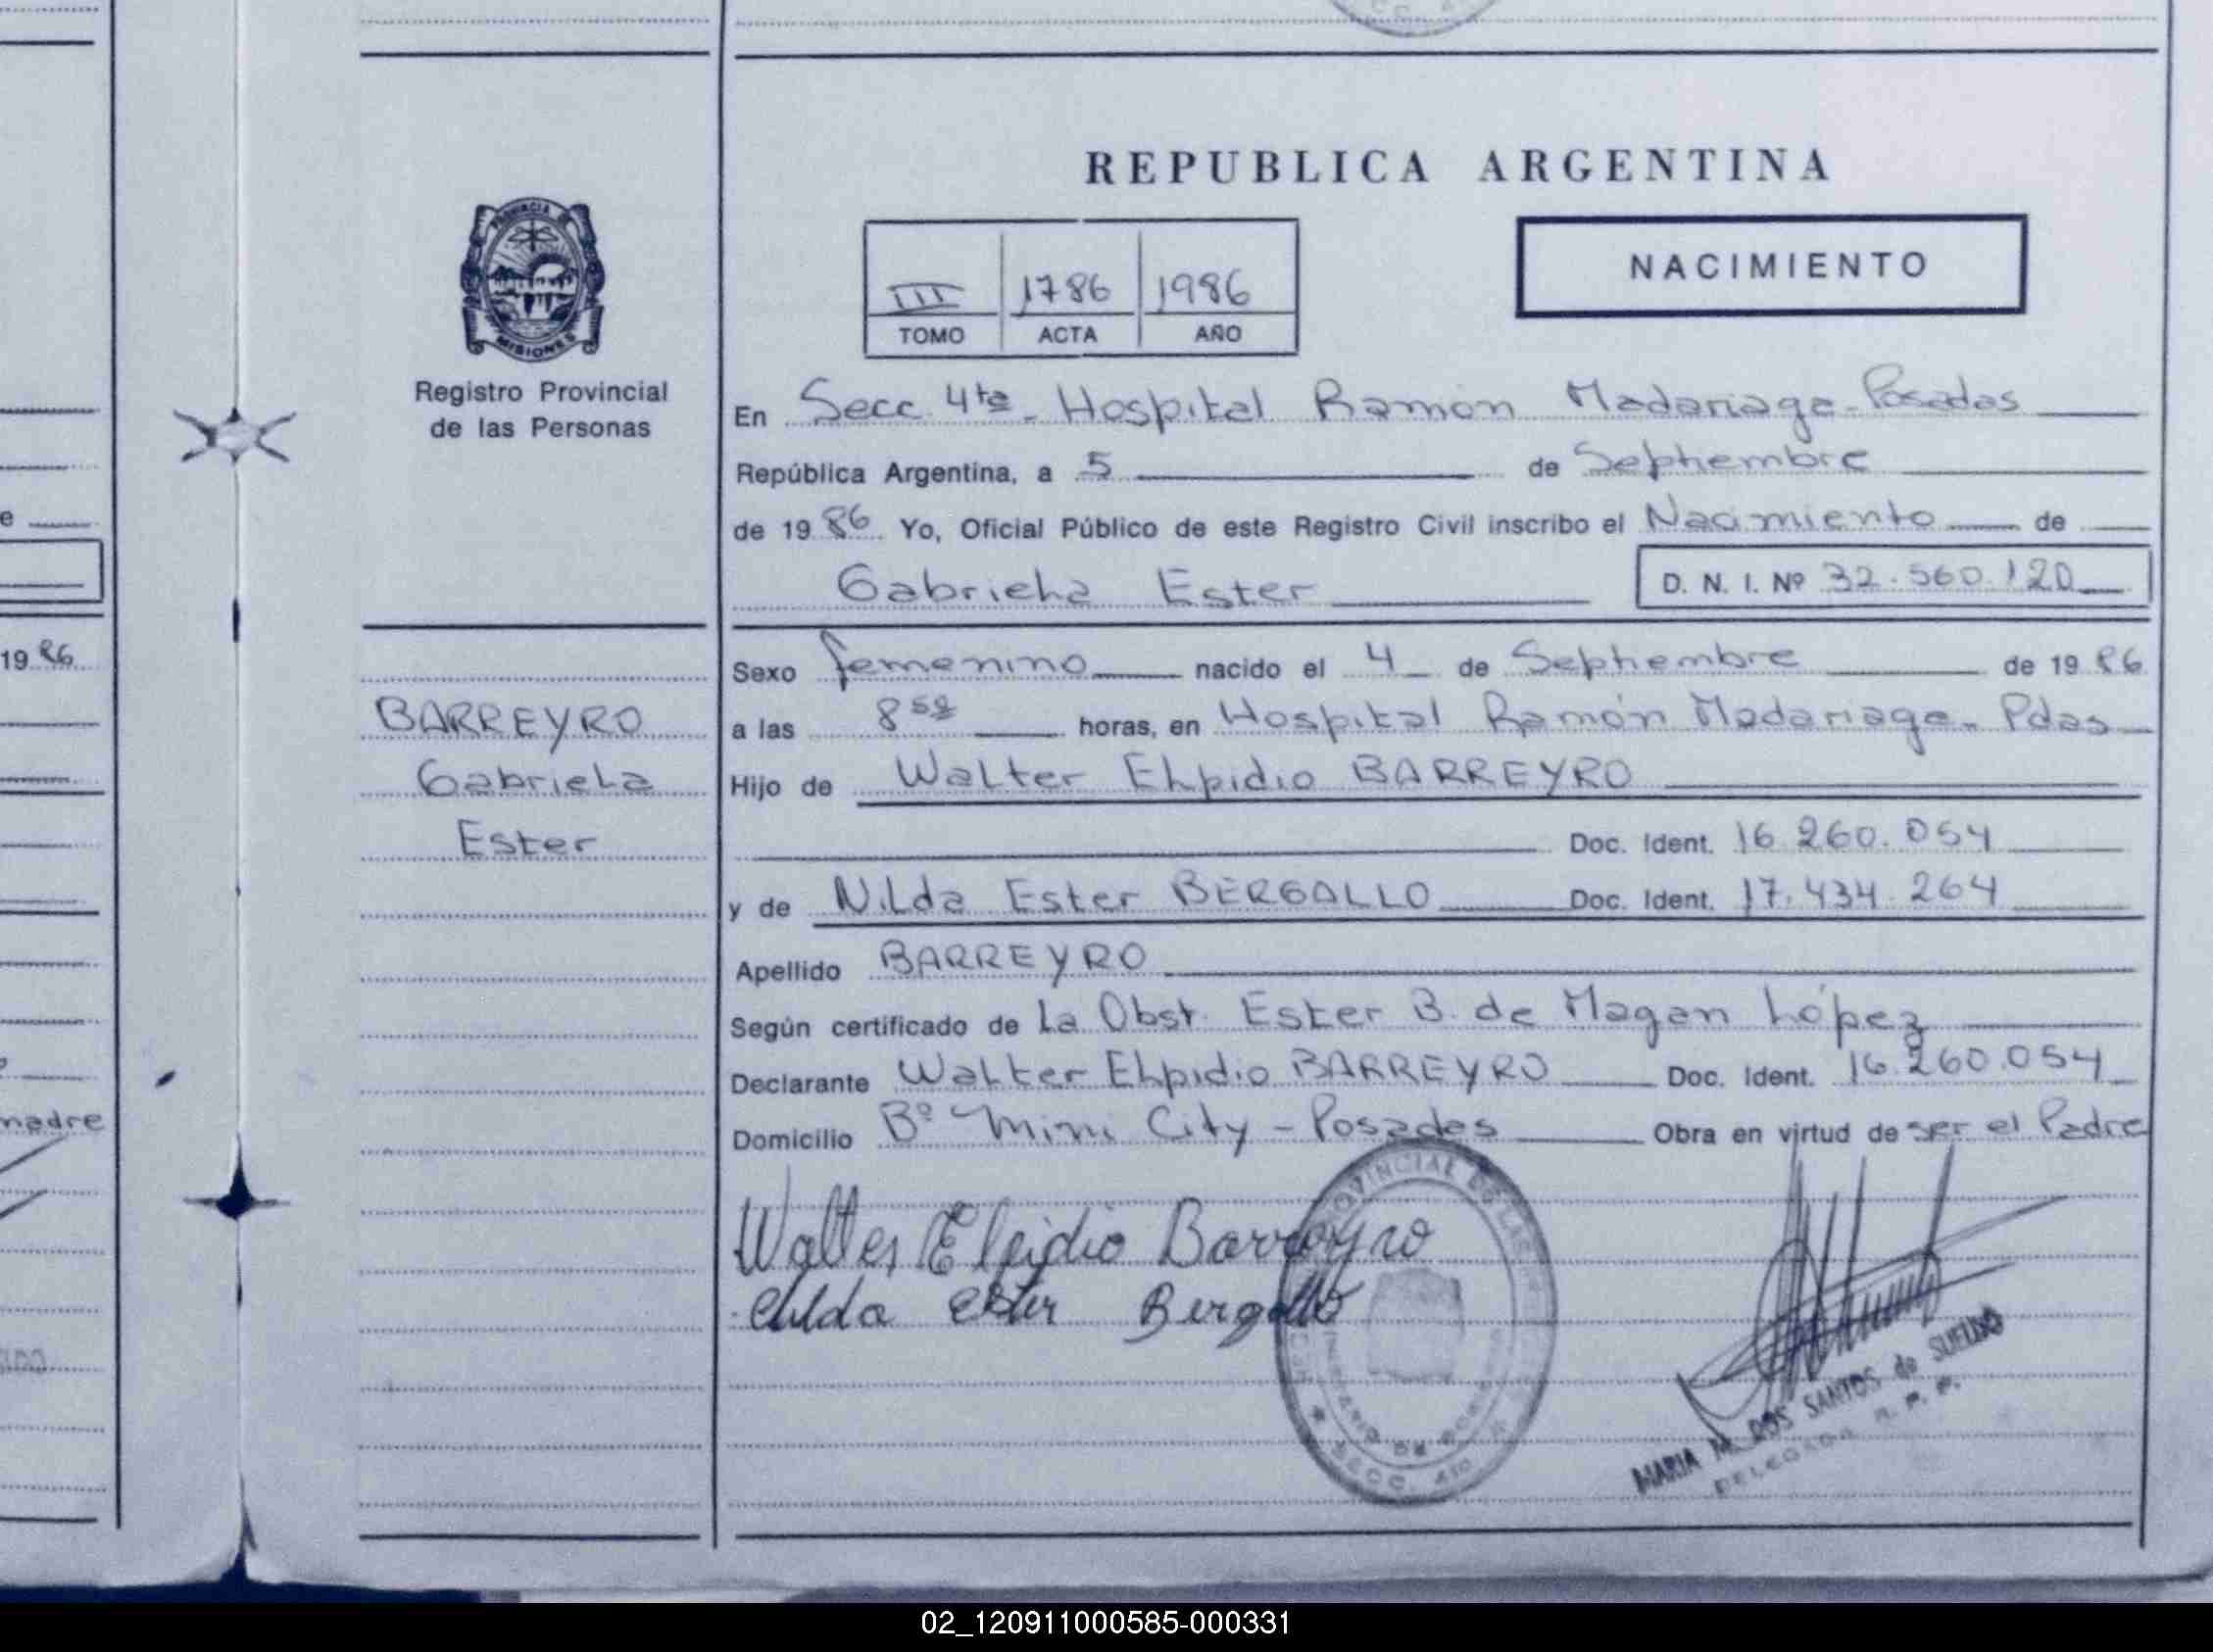 REPUBLICA ARGENTINA
NACIMIENTO
III 1786 1986
TOMO ACTA AÑO
PROVINCIA DE
MISIONES
Registro Provincial
de las Personas
En Secc. 4ta - Hospital Ramón Madariaga - Posadas
República Argentina, a 5 de Septiembre
de 1986 Yo, Oficial Público de este Registro Civil inscribo el Nacimiento de
Gabriela Ester D. N. I. Nº 32.560.120
BARREYRO
Gabriela
Ester
Sexo femenino nacido el 4 de Septiembre de 1986
a las 8 horas, en Hospital Ramón Madariaga - Pdas
Hijo de Walter Elpidio BARREYRO
Doc. Ident. 16.260.054
y de Nilda Ester BERGALLO Doc. Ident. 17.434.264
Apellido BARREYRO
Según certificado de La Obst. Ester B. de Magan López
Declarante Walter Elpidio BARREYRO Doc. Ident. 16.260.054
Domicilio Bº Mini City - Posadas Obra en virtud de ser el Padre
Walter Elpidio Barreyro
Nilda Ester Bergallo
MARIA M. DOS SANTOS de SUELDO
DELEGADA R. P. P.
e
1986
madre
02_120911000585-000331